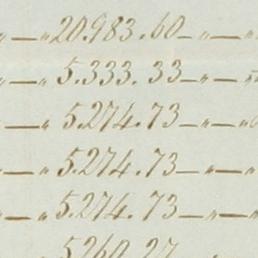 " — " 20.983.60 — " — "
" — " 5.333.33 — " — "
— " 5.274.73 — " — "
" — " 5.274.73 — " — "
— " 5.274.73 — " — "
5.260.27 — "